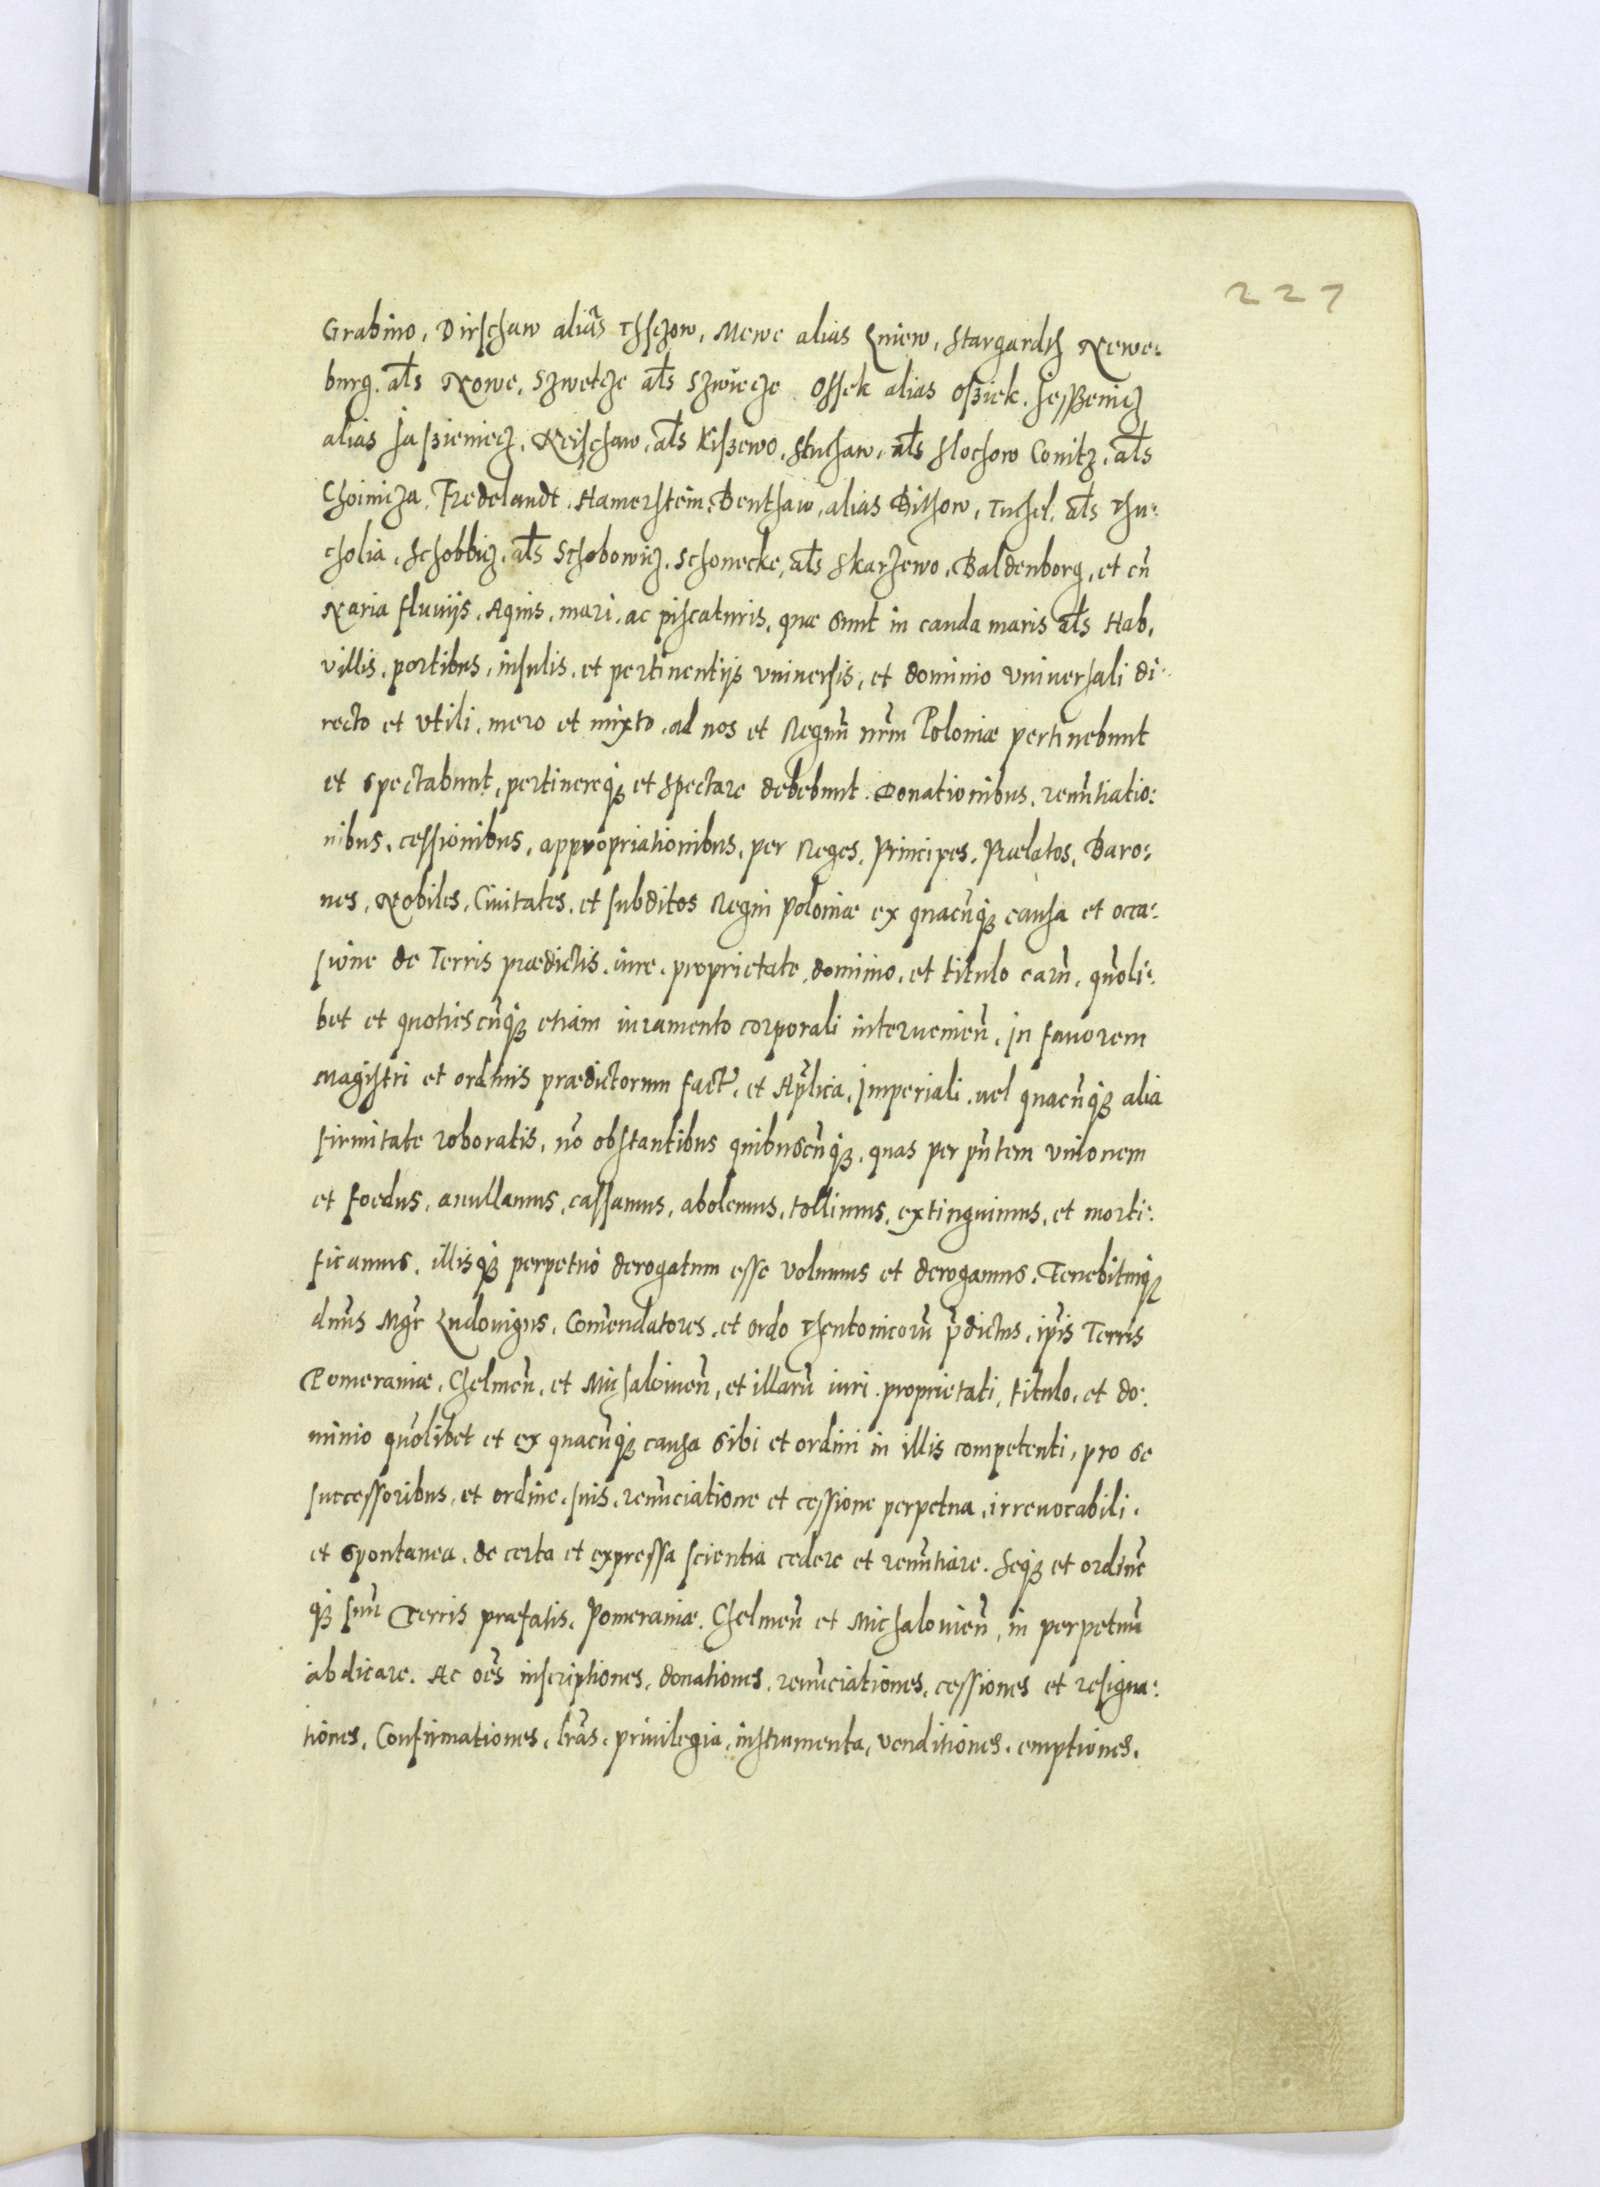 227
Grabino, Dirschaw aliãs Thszow, Mewe alias Gniew, Stargardth Newe:
burg. als̄ Nowe, Szwetcze als̄ Szwiecze. Ossek alias Osziek. Jesszenicz
alias Jaszieniecz, Keischaw, als̄ Kiszewo, Sluchaw, als̄ Slochow Conitz, als̄
Choinicza, Fredelandt, Hamerstein, Benthaw, alias Bithow, Tuchel, als̄ Thu:
cholia, Schobbicz, als̄ Schobowicz, Schonecke, als̄ Skarzewo, Baldenborg, et cū
Naria fluuijs, Aquis, mari, ac piscaturis, quæ sunt in cauda maris als̄ Hab,
villis, portibus, insulis, et pertinentijs vniuersis, et dominio vniuersali di:
recto et vtili, mero et mixto, ad nos et Regnū nr̄m Poloniæ pertinebunt
et spectabunt, pertinereq̧ et spectare debebunt. Donationibus, renūtiatio:
nibus, cessionibus, appropriationibus, per Reges, Principes, Prælatos, Baro:
nes, Nobiles, Ciuitates, et subditos Regni Poloniæ ex quacūq̧ causa et occa:
sione de Terris prædictis, iure, proprietate, dominio, et titulo earū, quōli:
bet et quotiescūq̧ etiam iuramento corporali interuenien̄, in fauorem
Magistri et ordinis prædictorum fact̄, et Ap̄lica, Imperiali, uel quacūq̧ alia
firmitate roboratis, nō obstantibus quibuscūq̧, quas per pn̄tem vnionem
et foedus, anullamus, cassamus, abolemus, tollimus, extinguimus, et morti:
ficamus, illisq̧ perpetuò derogatum esse volumus et derogamus. Tenebiturq̧
dn̄us Mgr̄ Ludouigus, Com̄endatores, et ordo Theutonicorū p̄dictus, ip̄is Terris
Pomeraniæ, Chelmen̄, et Michalouien̄, et illarū iuri, proprietati, titulo, et do:
minio quōlibet et ex quacūq̧ causa sibi et ordini in illis competenti, pro se
successoribus, et ordine suis, renūciatione et cessione perpetua, irreuocabili,
et spontanea, de certa et expressa scientia cedere et renūtiare. Seq̧ et ordinē
q̧ suū Terris præfatis, Pomeraniæ, Chelmen̄ et Michalouien̄, in perpetuū
abdicare. Ac oēs inscriptiones, donationes, renūciationes, cessiones et resigna:
tiones, Confirmationes, lrās, priuilegia, instrumenta, venditiones, emptiones,